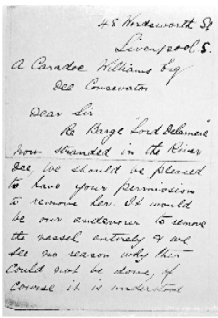 45 Wordsworth St
Liverpool 8.
A Caradoc Williams Esq
Dee Conservator
Dear Sir
Re Barge "Lord Delamere"
now stranded in the River
Dee, we should be pleased
to have your permission
to remove her. It would
be our endeavour to remove
the vessel entirely & we
see no reason why this
could not be done, of
course it is understood